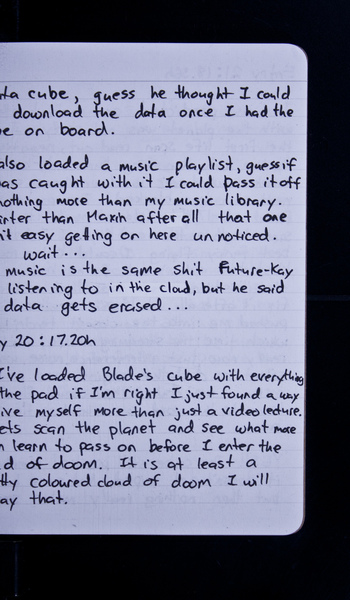 ta cube, guess he thought I could
download the data once I had the
e on board.
also loaded a music playlist, guess if
as caught with it I could pass it off
nothing more than my music library.
rter than Marin after all that one
n't easy getting on here unnoticed.
wait...
music is the same shit Future-Kay
listening to in the cloud, but he said
data gets erased...
y 20:17.20h
I've loaded Blade's cube with everything
the pad if I'm right I just found a way
ive myself more than just a video lecture.
ets scan the planet and see what more
n learn to pass on before I enter the
d of doom. It is at least a
tly coloured cloud of doom I will
ay that.